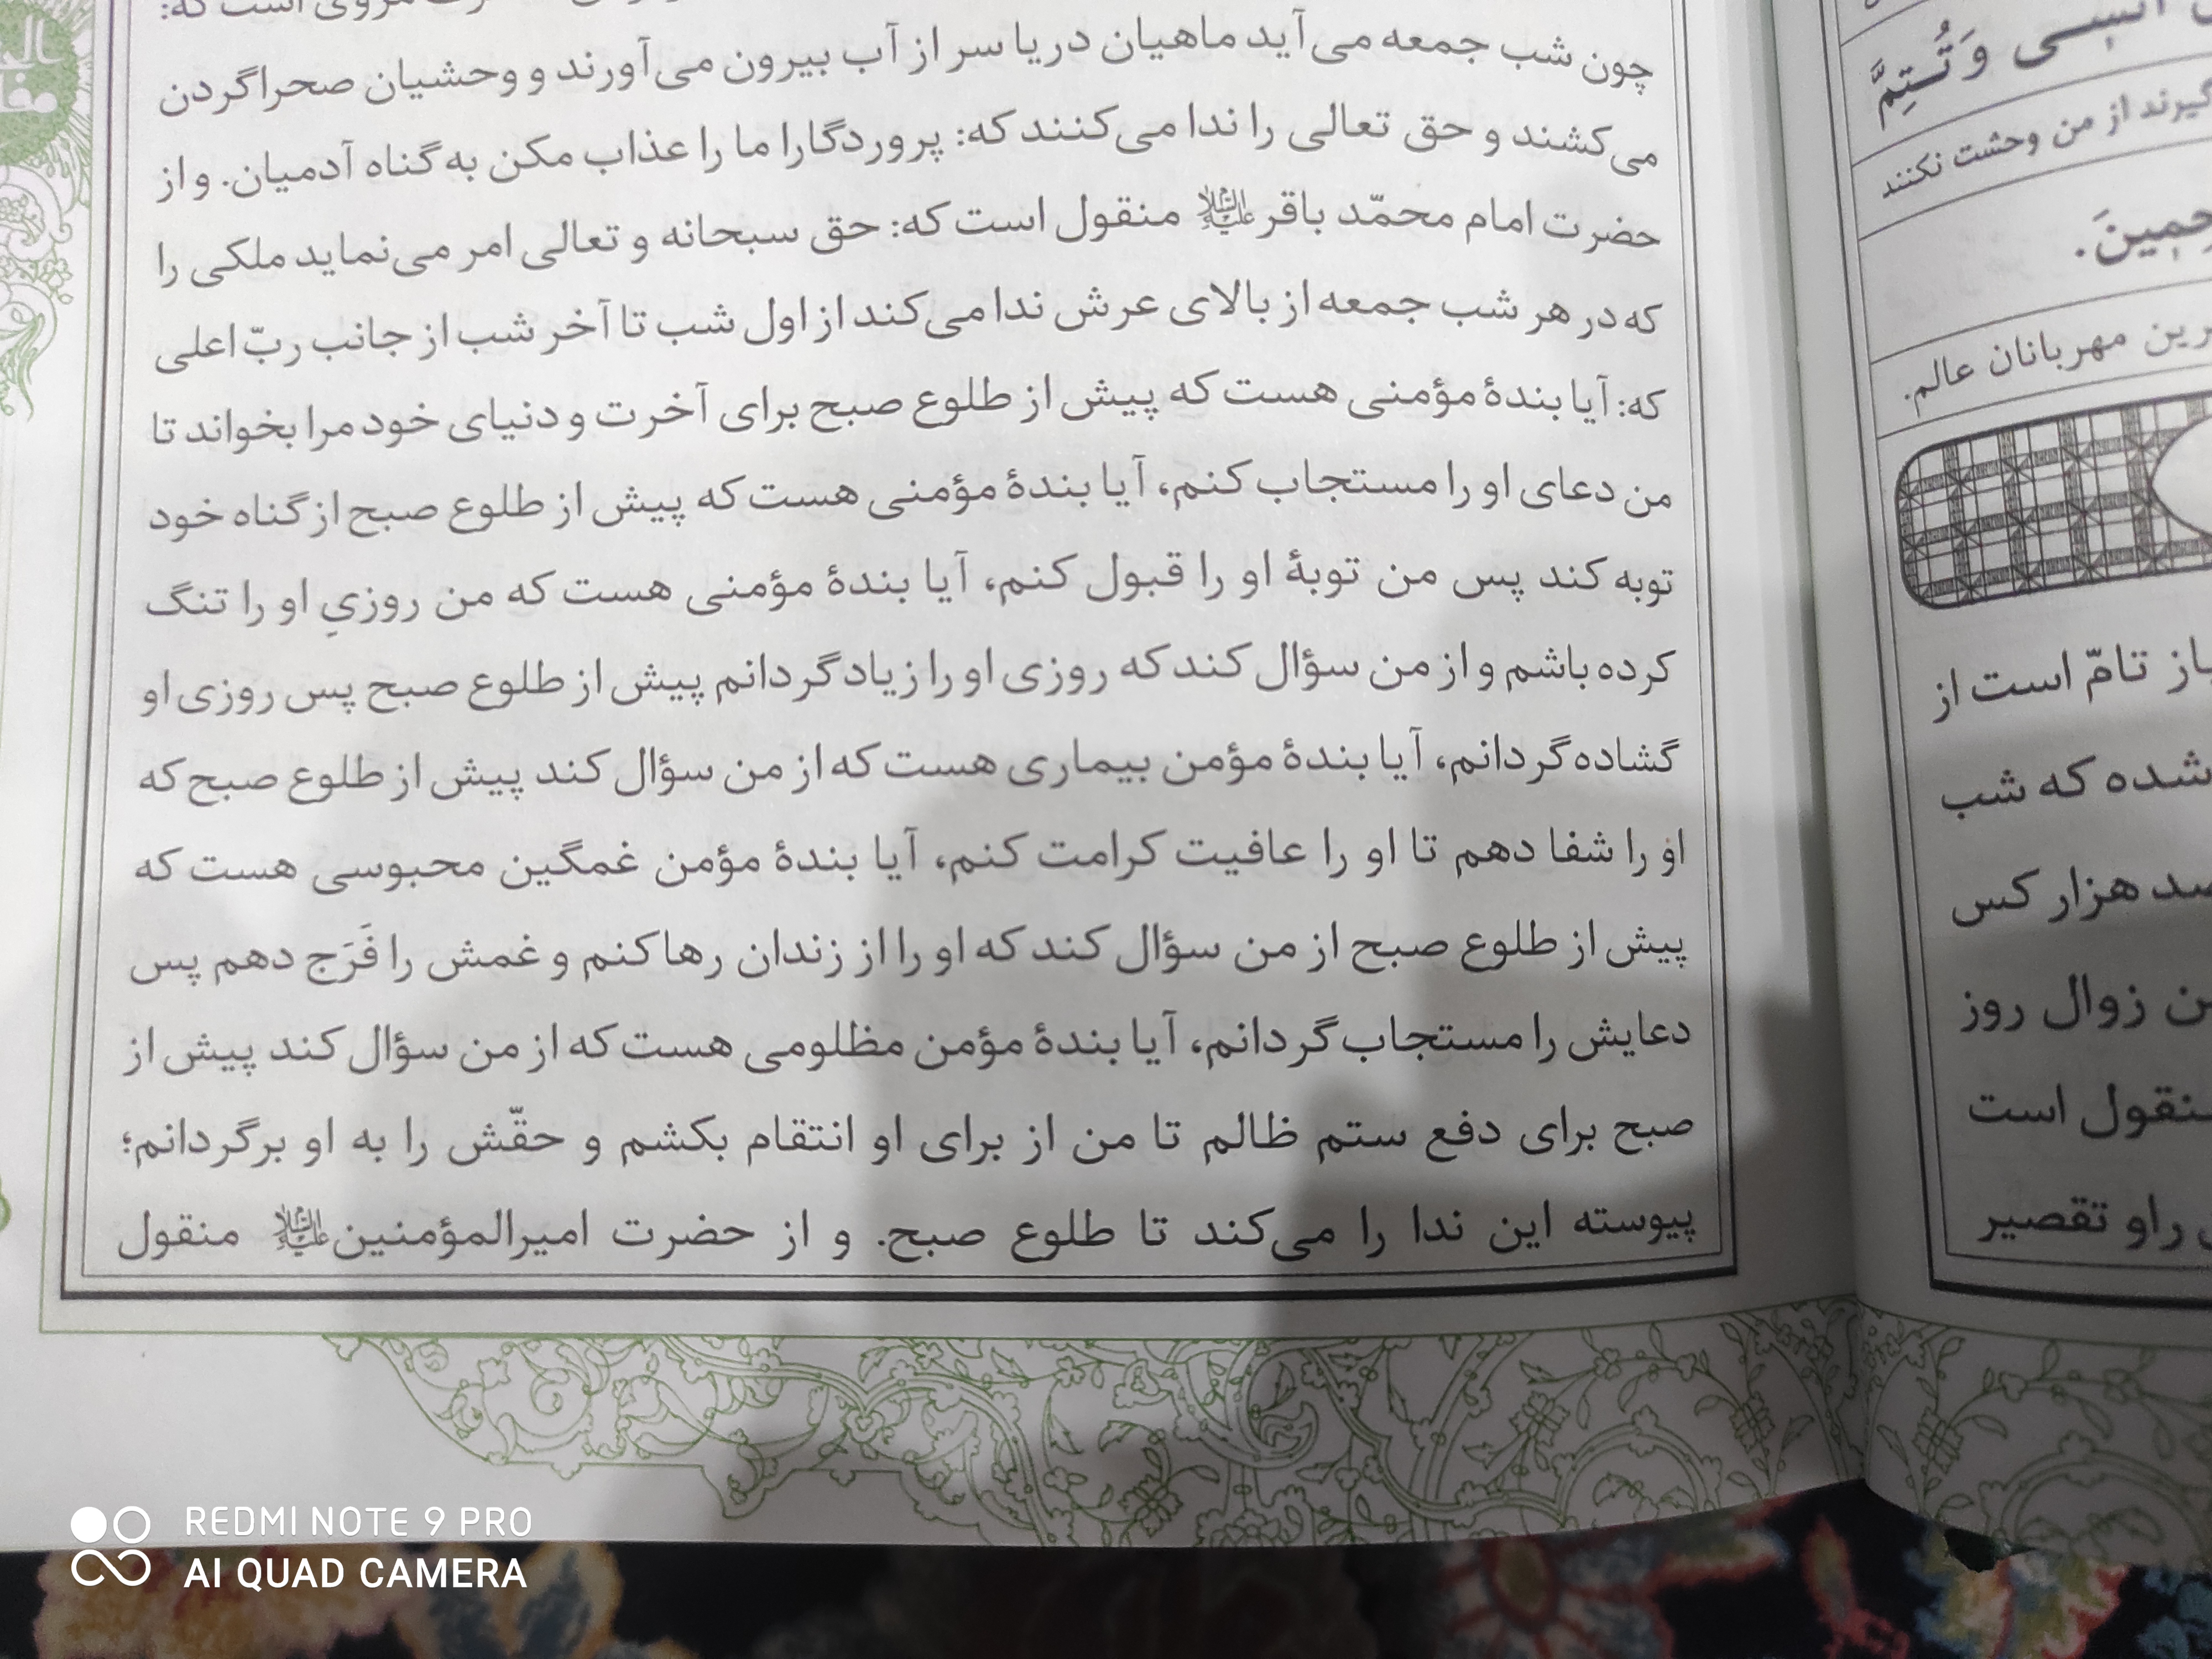 مروی است که:
چون شب جمعه می‌آید ماهیان دریا سر از آب بیرون می‌آورند و وحشیان صحرا گردن
می‌کشند و حق تعالی را ندا می‌کنند که: پروردگارا ما را عذاب مکن به گناه آدمیان. و از
حضرت امام محمّد باقر علیه‌السلام منقول است که: حق سبحانه و تعالی امر می‌نماید ملکی را
که در هر شب جمعه از بالای عرش ندا می‌کند از اول شب تا آخر شب از جانب ربّ اعلی
که: آیا بندهٔ مؤمنی هست که پیش از طلوع صبح برای آخرت و دنیای خود مرا بخواند تا
من دعای او را مستجاب کنم، آیا بندهٔ مؤمنی هست که پیش از طلوع صبح از گناه خود
توبه کند پس من توبهٔ او را قبول کنم، آیا بندهٔ مؤمنی هست که من روزیِ او را تنگ
کرده باشم و از من سؤال کند که روزی او را زیاد گردانم پیش از طلوع صبح پس روزی او
گشاده گردانم، آیا بندهٔ مؤمن بیماری هست که از من سؤال کند پیش از طلوع صبح که
او را شفا دهم تا او را عافیت کرامت کنم، آیا بندهٔ مؤمن غمگین محبوسی هست که
پیش از طلوع صبح از من سؤال کند که او را از زندان رها کنم و غمش را فَرَج دهم پس
دعایش را مستجاب گردانم، آیا بندهٔ مؤمن مظلومی هست که از من سؤال کند پیش از
صبح برای دفع ستم ظالم تا من از برای او انتقام بکشم و حقّش را به او برگردانم؛
پیوسته این ندا را می‌کند تا طلوع صبح. و از حضرت امیرالمؤمنین علیه‌السلام منقول
وَ تُتِمَّ
از من وحشت نکنند
مهربانان عالم.
تامّ است از
شده که شب
هزار کس
زوال روز
منقول است
راو تقصیر
REDMI NOTE 9 PRO
AI QUAD CAMERA